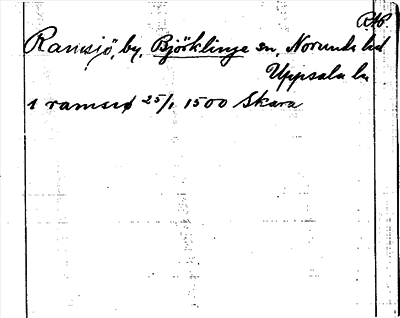 RAP.
Ramsjö, by, Björklinge sn, Norunda hd
Uppsala ln
i ramsiø 25/1 1500 Skara